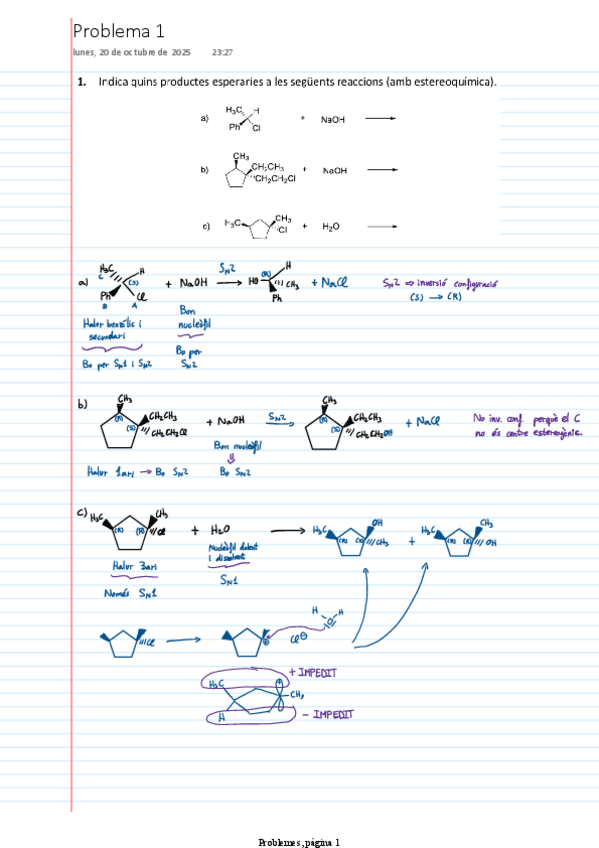 Problema 1
lunes, 20 de octubre de 2025 23:27
1. Indica quins productes esperaries a les següents reaccions (amb estereoquímica).
a) H₃C H Ph Cl + NaOH
b) CH₃ CH₂CH₃ CH₂CH₂Cl + NaOH
c) H₃C CH₃ Cl + H₂O
a) H₃C H (S) Ph Cl + NaOH SN2 HO (R) H CH₃ Ph + NaCl SN2 ⇒ inversió configuració
C B A (S) → (R)
Halur benzílic i secundari
Bon nucleòfil
Bo per SN1 i SN2
Bo per SN2
b) CH₃ (R) (S) CH₂CH₃ CH₂CH₂Cl + NaOH SN2 CH₃ (R) (S) CH₂CH₃ CH₂CH₂OH + NaCl
No inv. conf. perquè el C
no és centre estereogènic.
Bon nucleòfil
Halur 1ari → Bo SN2 Bo SN2
c) H₃C (R) (R) CH₃ Cl + H₂O H₃C (R) (S) OH CH₃ + H₃C (R) (R) CH₃ OH
Nucleòfil dolent
i dissolvent
Halur 3ari
SN1
Només SN1
Cl Cl⊖ H O H
+ IMPEDIT
H₃C CH₃
H
- IMPEDIT
Problemes, página 1